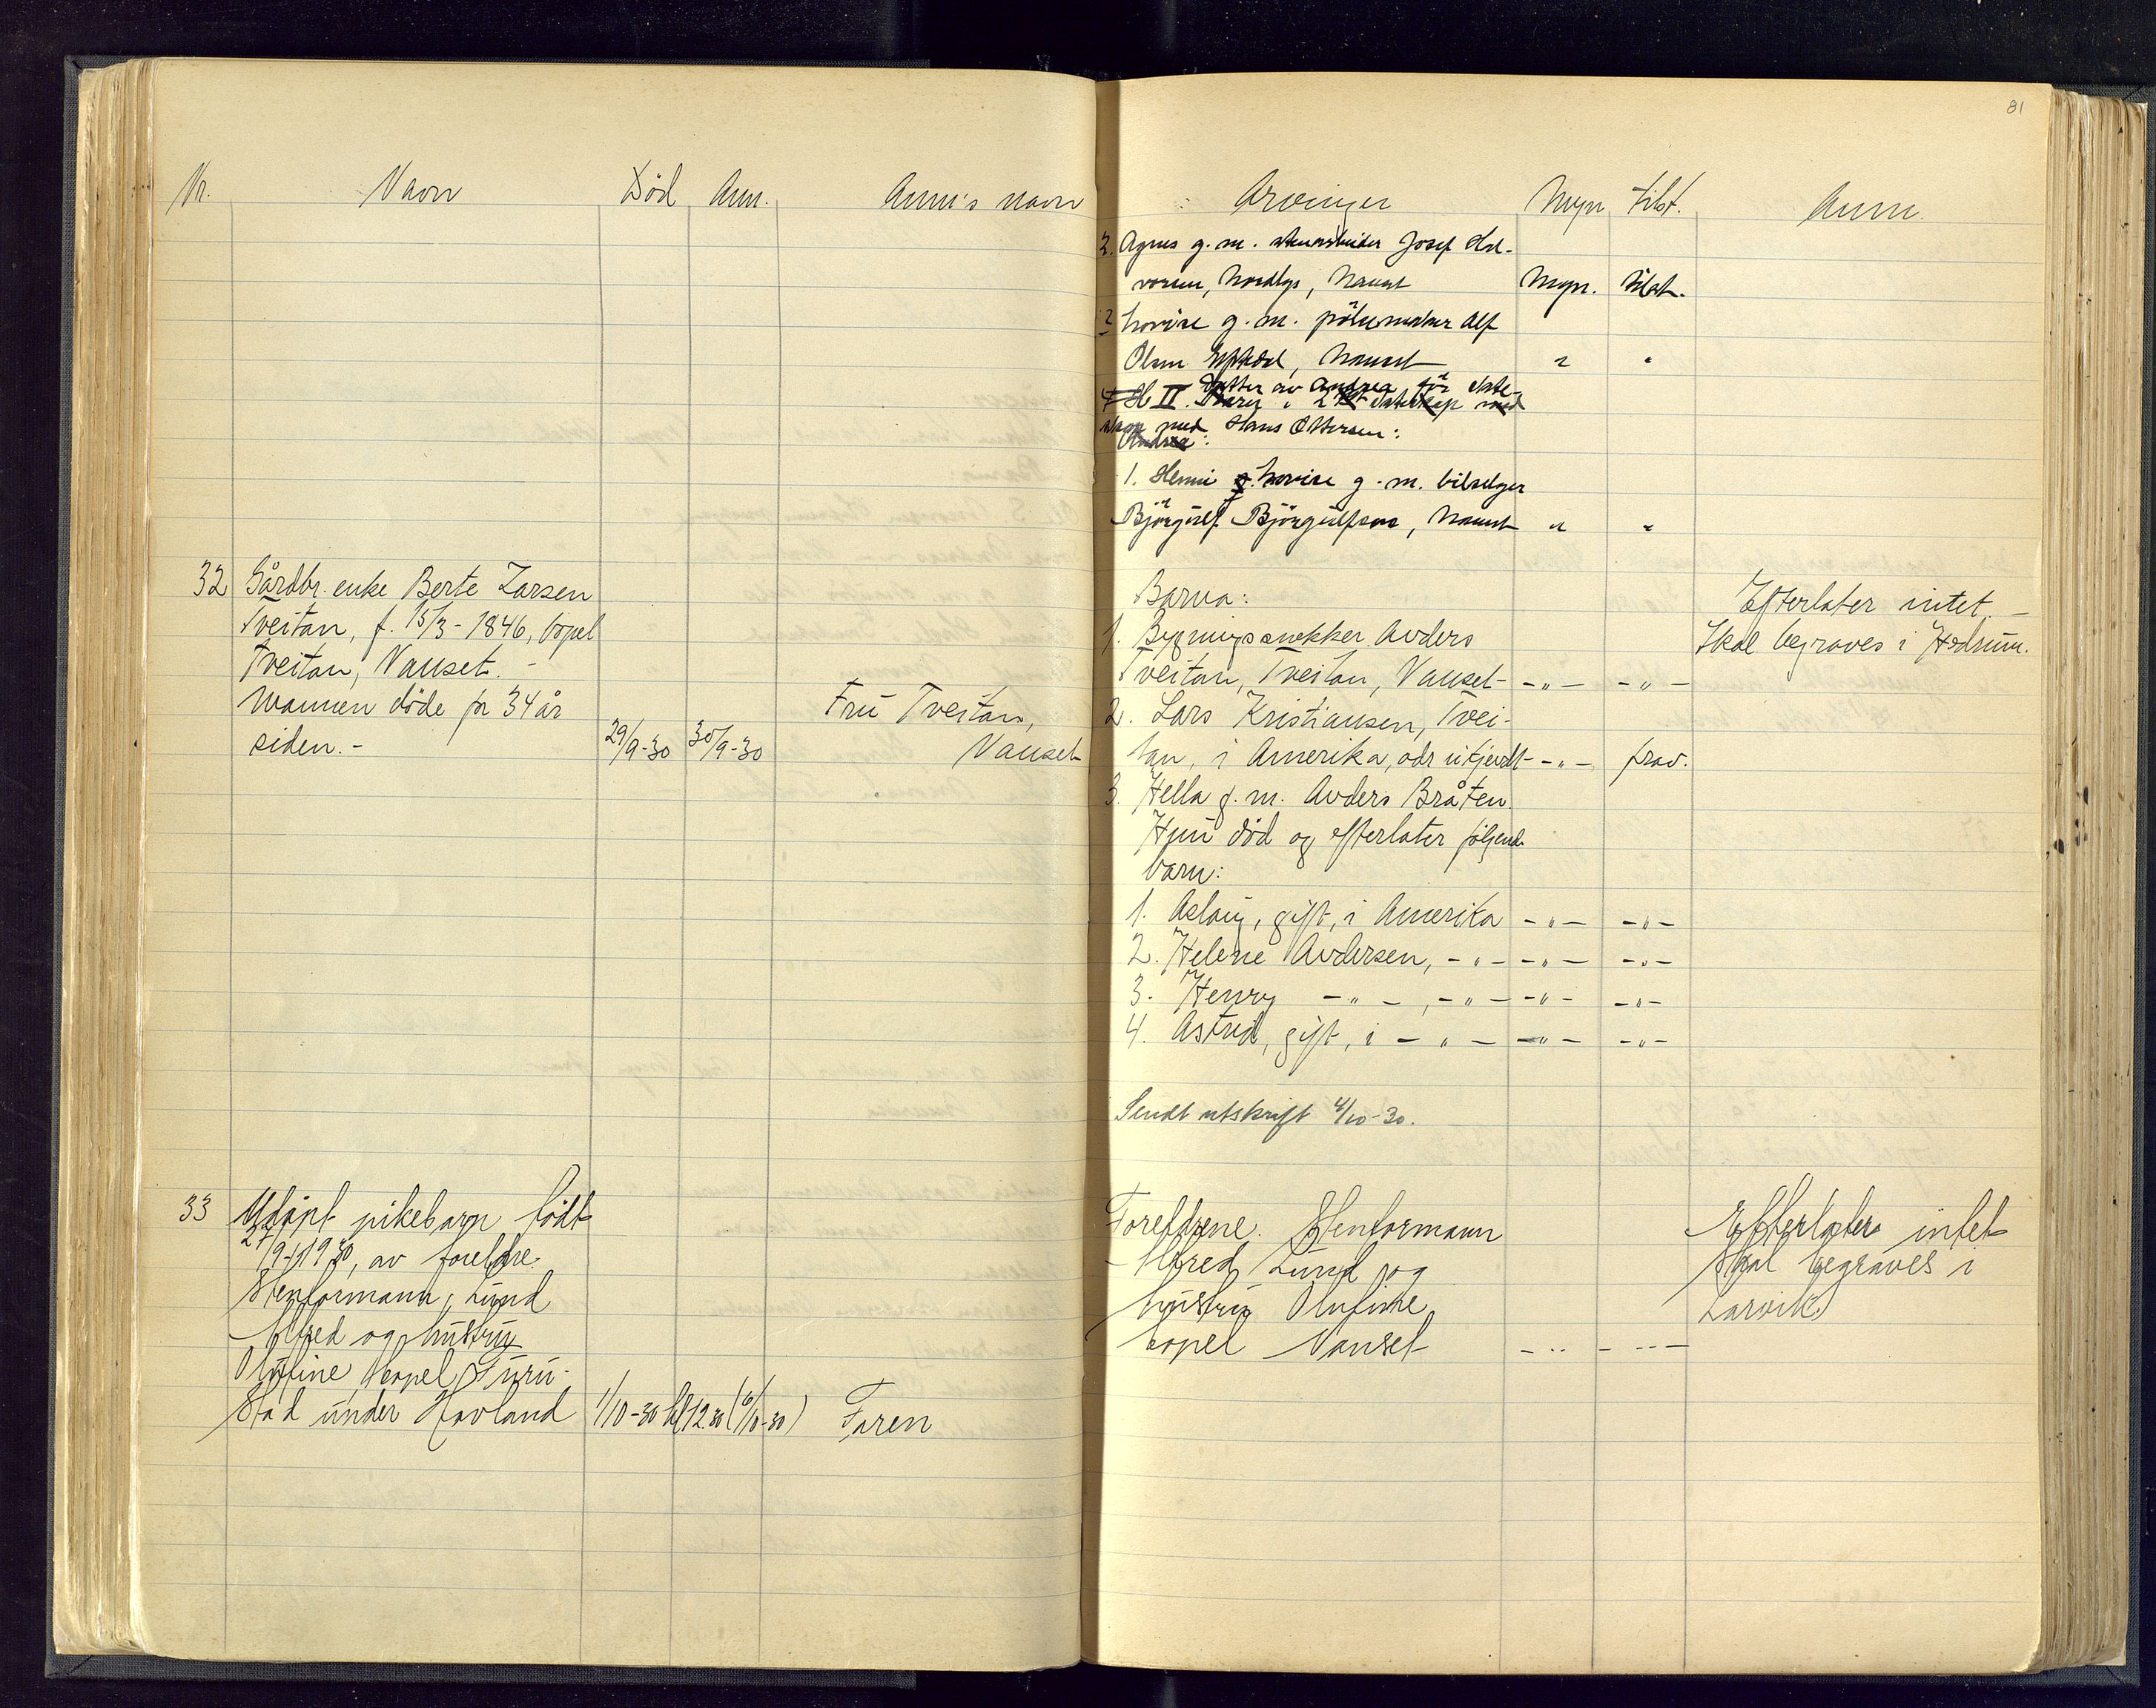 81
Nr. Navn Död Anm. Anm's navn
Arvinger Myn. tilst. Anm.
2. Agnes g. m. stenarbeider Josef Hal-
vorsen, Nordbye, Nanset Myn. tilst.
3 Lovise g. m. pölsemaker Alf
Olsen, Nanset " "
II. Datter av Andrea för ekte-
skap med Hans Ottersen:
1. Henni Lovise g. m. bilselger
Björgulf Björgulfsen, Nanset " "
32 Gårdbr. enke Berte Larsen
Tveitan, f. 15/3 - 1846, bopel
Tveitan, Nanset. -
Mannen döde for 34 år
siden. - 29/9-30 30/9-30
Fru Tveitan,
Nanset
Barna:
1. Bygningssnekker Anders
Tveitan, Tveitan, Nanset -"- -"-
2. Lars Kristiansen, Tvei-
tan, i Amerika, adr. ukjendt -"- frav.
3. Hella g. m. Anders Bråten.
Hun död og efterlater fölgende
barn:
1. Aslaug, gift, i Amerika -"- -"-
2. Helene Andersen, -"- -"- -"-
3. Henry -"-, -"- -"- -"-
4. Astrid, gift, i -"- -"- -"-
Efterlater intet. -
Skal begraves i Hedrum.
Sendt utskrift 4/10-30.
33 Udöpt pikebarn födt
27/9-1930, av foreldre.
Stenformann, Lund
Alfred og hustru
Olufine, bopel Furu-
stad under Hovland 1/10-30 kl 12.30 (6/10-30) Faren
Foreldrene. Stenformann
Alfred Lund og
hustru Olufine
bopel Nanset -"- -"-
Efterlater intet
Skal begraves i
Larvik.